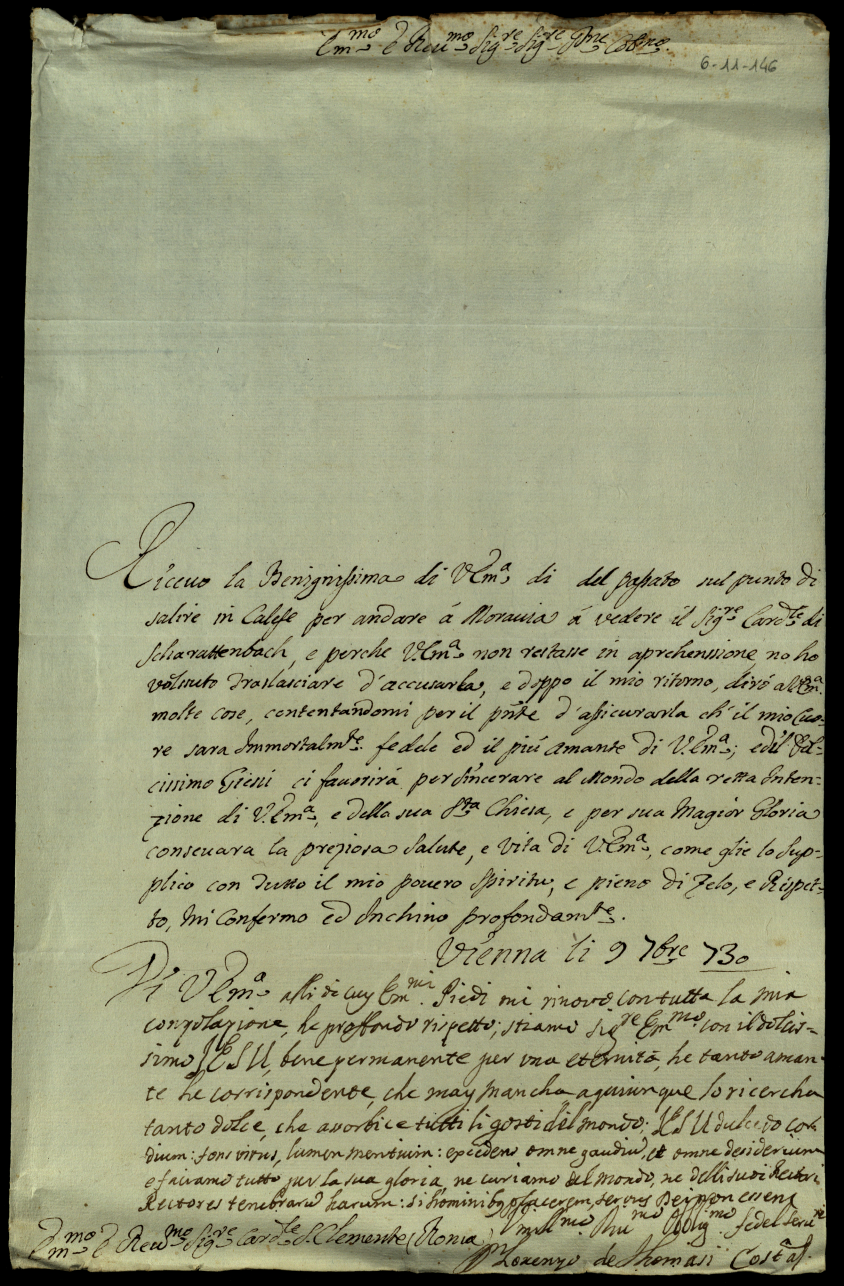 Em.mo e Reu.mo Sig.re Sig.re Pne Colmo.
6-11-146
Riceuo la Benignissima di V.Em.a di del passato sul punto di
salire in Calesse per andare á Morauia á vedere il Sig.re Card.le di
Scharattenbach, e perche V.Em.a non restasse in aprehenssione no ho
volsuto traslasciare d'accusarla, e doppo il mio ritorno, diró a V.Em.a
molte cose, contentandomi per il pnte d'assicurarla ch'il mio Cuo-
re sara Immortalm.te fedele ed il piú amante di V.Em.a; ed il Dol-
cissimo Giesú ci fauorirá per sincerare al Mondo della retta Inten-
zione di V.Em.a, e della sua S.ta Chiesa, e per sua Magior Gloria
conseuara la preziosa Salute, e Vita di V.Em.a, come glie lo Sup-
plico con tutto il mio pouero Spiritu, e pieno di Zelo, e Rispet-
to, mi Confermo ed Inchino profondam.te.
Vienna li 9 7bre 730
Di V.Em.a alli di cuy Em.mi Piedi mi rinovo con tutta la mia
consolazione, he proffondo rispetto; stiamo Sig.re Em.mo con il dolcis-
simo JESU, bene permanente per una eternitá, he tanto aman-
te he corrispondente, che may mancha a quiunque lo ricercha
tanto dolce, che assorbice tutti li gosti del mondo: JESU dulcedo cor-
dium: fons vivus, lumen mentium: excedens omne gaudiu, et omne desiderium
e faciamo tutto per la sua gloria, ne curiamo del mondo, ne delli suoi Rectori
Rectores tenebraru harum: si hominibus placerem, servus Dei non essem
Hu.mo Oblig.mo fedel seru.re
Em.mo e Reu.mo Sig.re Card.le S. Clemente (Roma)
Lorenzo de Thomasi Cost.a